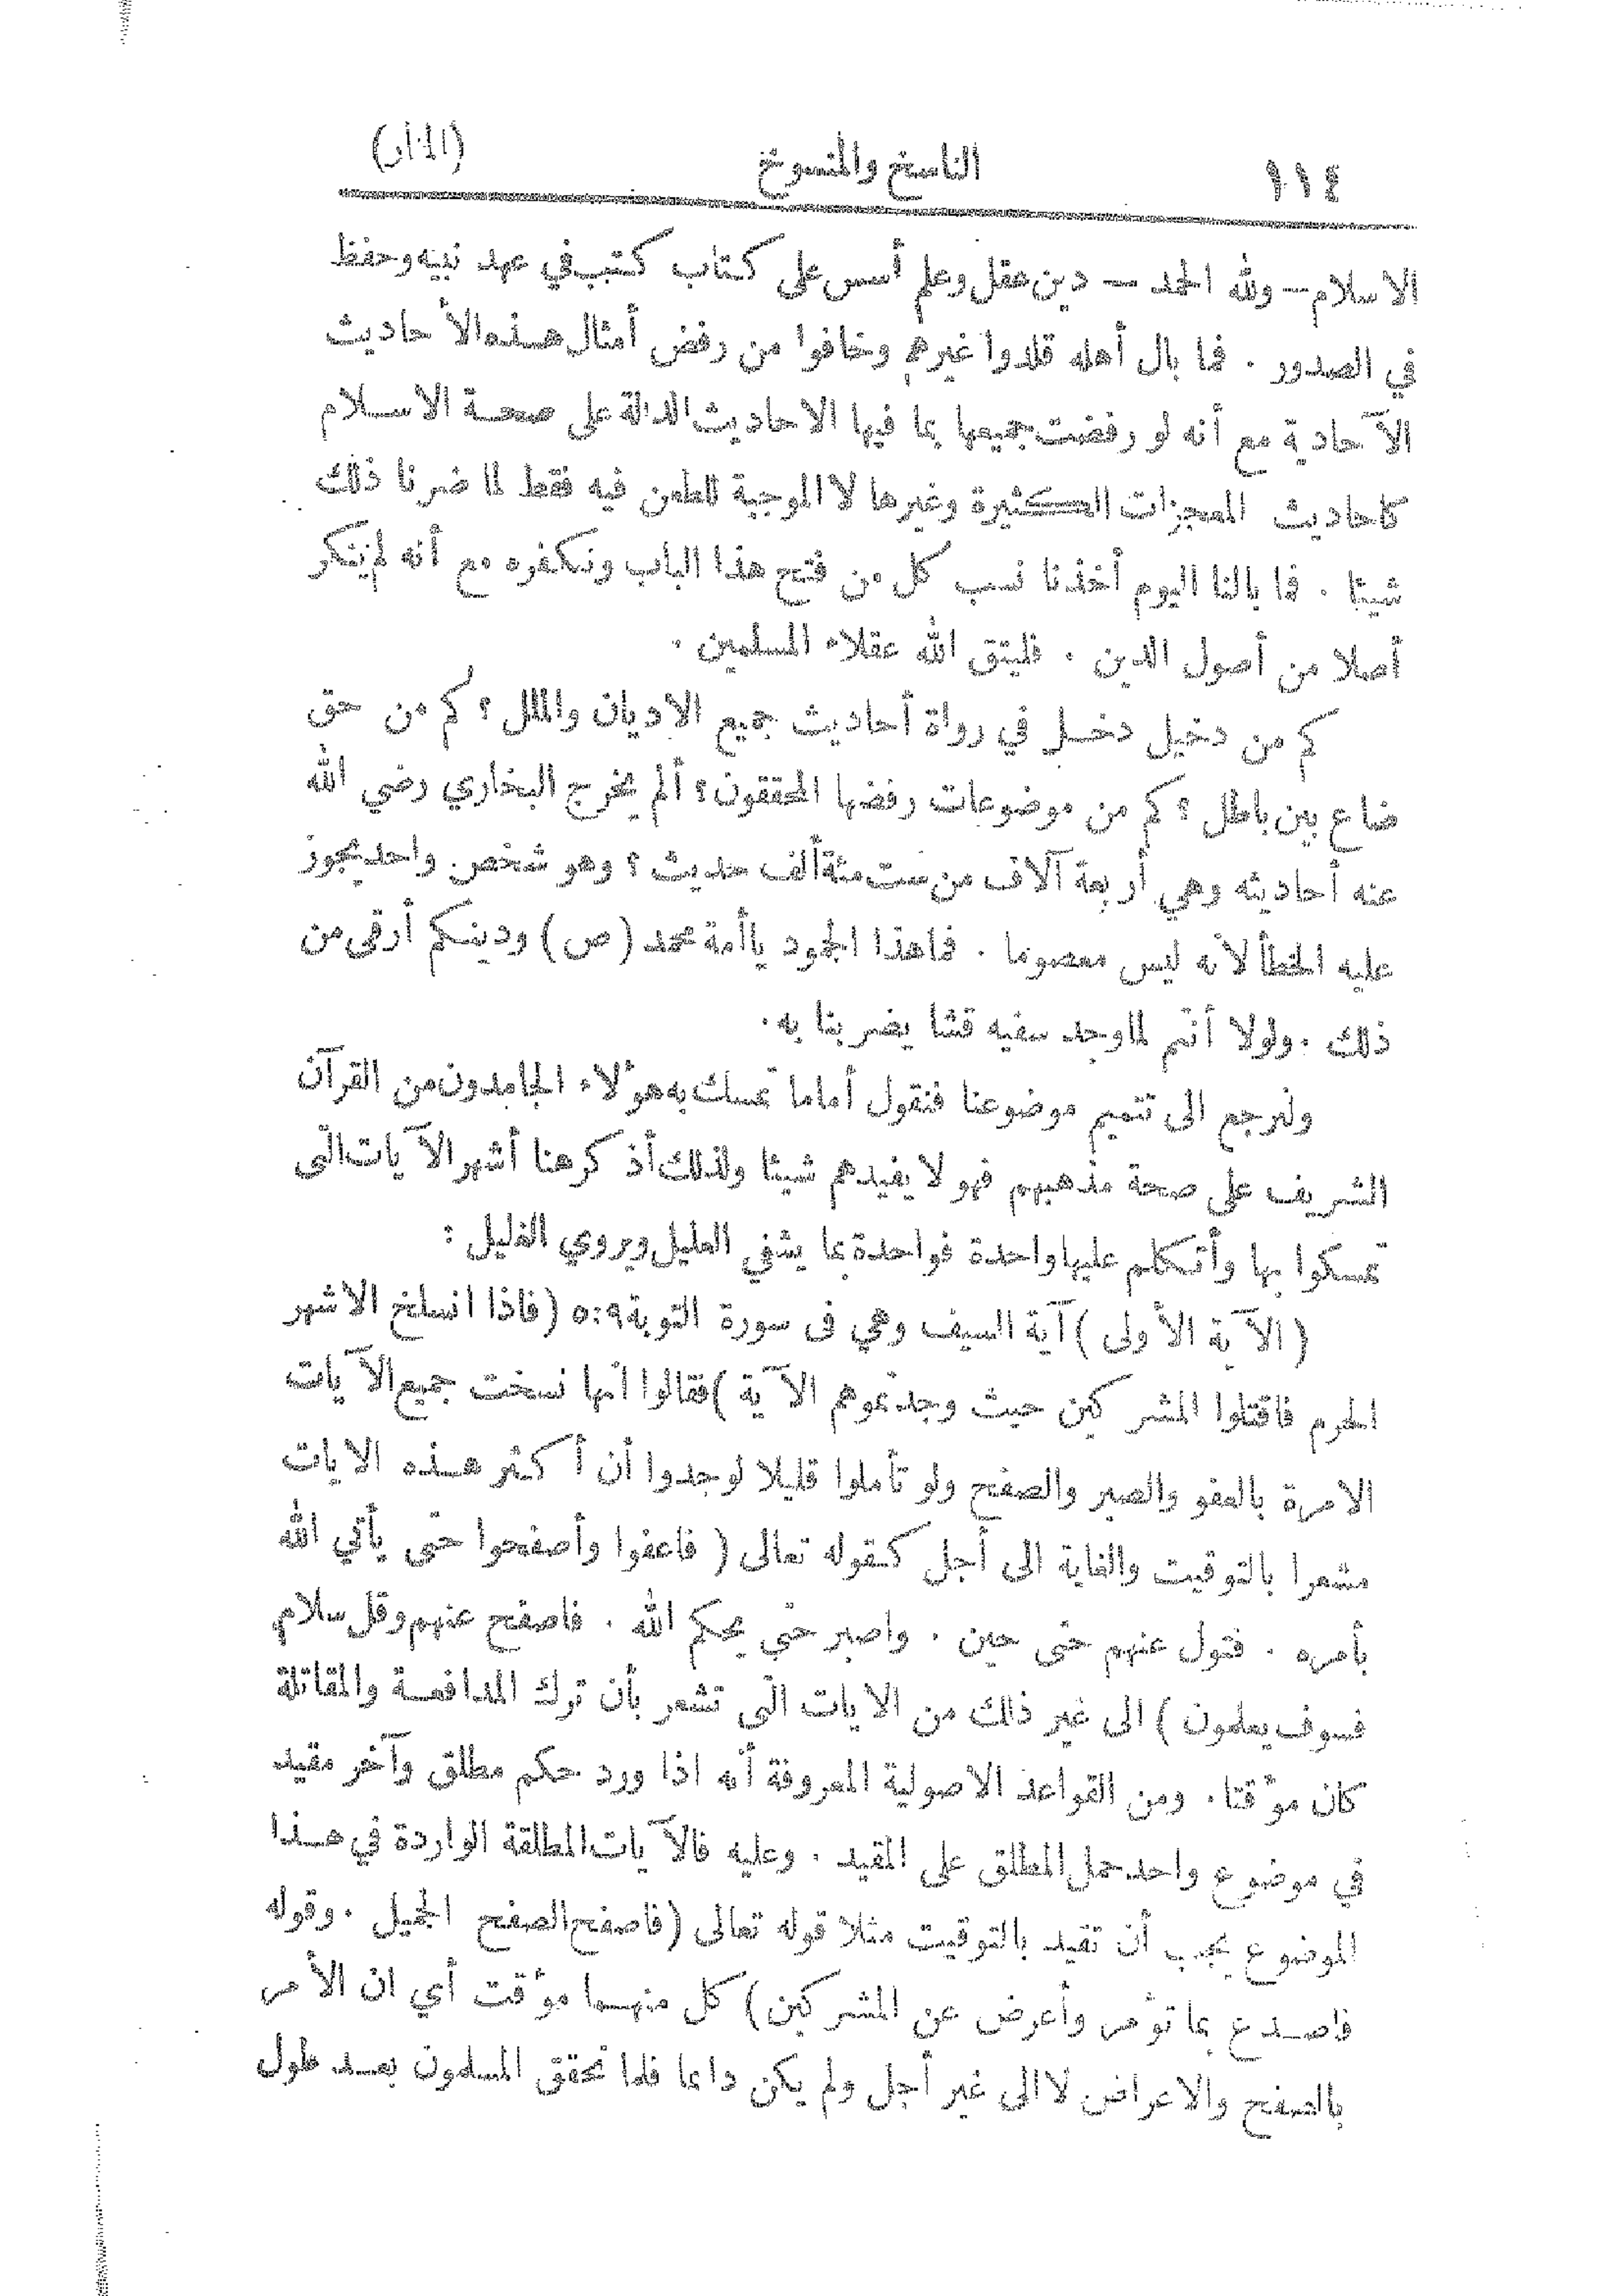 ١١٤ الناسخ والمنسوخ (المنار)
الاسلام — ولله الحمد — دين عقل وعلم أسس على كتاب كتب في عهد نبيه وحفظ
في الصدور . فما بال أهله قلدوا غيرهم وخافوا من رفض أمثال هذه الأحاديث
الآحادية مع أنه لو رفضت جميعها بما فيها الاحاديث الدالة على صحة الاسلام
كاحاديث المعجزات الكثيرة وغيرها لا الموجبة للطعن فيه فقط لما ضرنا ذلك
شيئا . فما بالنا اليوم أخذنا نسب كل من فتح هذا الباب ونكفره مع أنه لم ينكر
أصلا من أصول الدين . فليتق الله عقلاء المسلمين .
كم من دخيل دخل في رواة أحاديث جميع الاديان والملل ؟ كم من حق
ضاع بين باطل ؟ كم من موضوعات رفضها المحققون ؟ ألم يخرج البخاري رضي الله
عنه أحاديثه وهي أربعة آلاف من ست مئة ألف حديث ؟ وهو شخص واحد يجوز
عليه الخطأ لأنه ليس معصوما . فما هذا الجمود ياأمة محمد (ص) ودينكم أرقى من
ذلك . ولولا أنتم لما وجد سفيه قشا يضربنا به .
ولنرجع الى تتميم موضوعنا فنقول أما ما تمسك به هؤلاء الجامدون من القرآن
الشريف على صحة مذهبهم فهو لا يفيدهم شيئا ولذلك أذكر هنا أشهر الآيات التي
تمسكوا بها وأتكلم عليها واحدة فواحدة بما يشفي العليل ويروي الغليل :
( الآية الأولى ) آية السيف وهي في سورة التوبة ٥:٩ (فاذا انسلخ الاشهر
الحرم فاقتلوا المشركين حيث وجدتموهم الآية ) فقالوا انها نسخت جميع الآيات
الامرة بالعفو والصبر والصفح ولو تأملوا قليلا لوجدوا أن أكثر هذه الايات
مشعرا بالتوقيت والغاية الى أجل كقوله تعالى ( فاعفوا وأصفحوا حتى يأتي الله
بأمره . فتول عنهم حتى حين . واصبر حتى يحكم الله . فاصفح عنهم وقل سلام
فسوف يعلمون ) الى غير ذلك من الايات التي تشعر بأن ترك المدافعة والمقاتلة
كان مؤقتا . ومن القواعد الاصولية المعروفة أنه اذا ورد حكم مطلق وآخر مقيد
في موضوع واحد حمل المطلق على المقيد . وعليه فالآيات المطلقة الواردة في هذا
الموضوع يجب أن تقيد بالتوقيت مثلا قوله تعالى (فاصفح الصفح الجميل . وقوله
فاصدع بما تؤمر وأعرض عن المشركين) كل منهما مؤقت أي ان الأمر
بالصفح والاعراض لا الى غير أجل ولم يكن دائما فلما تحقق المسلمون بعد طول